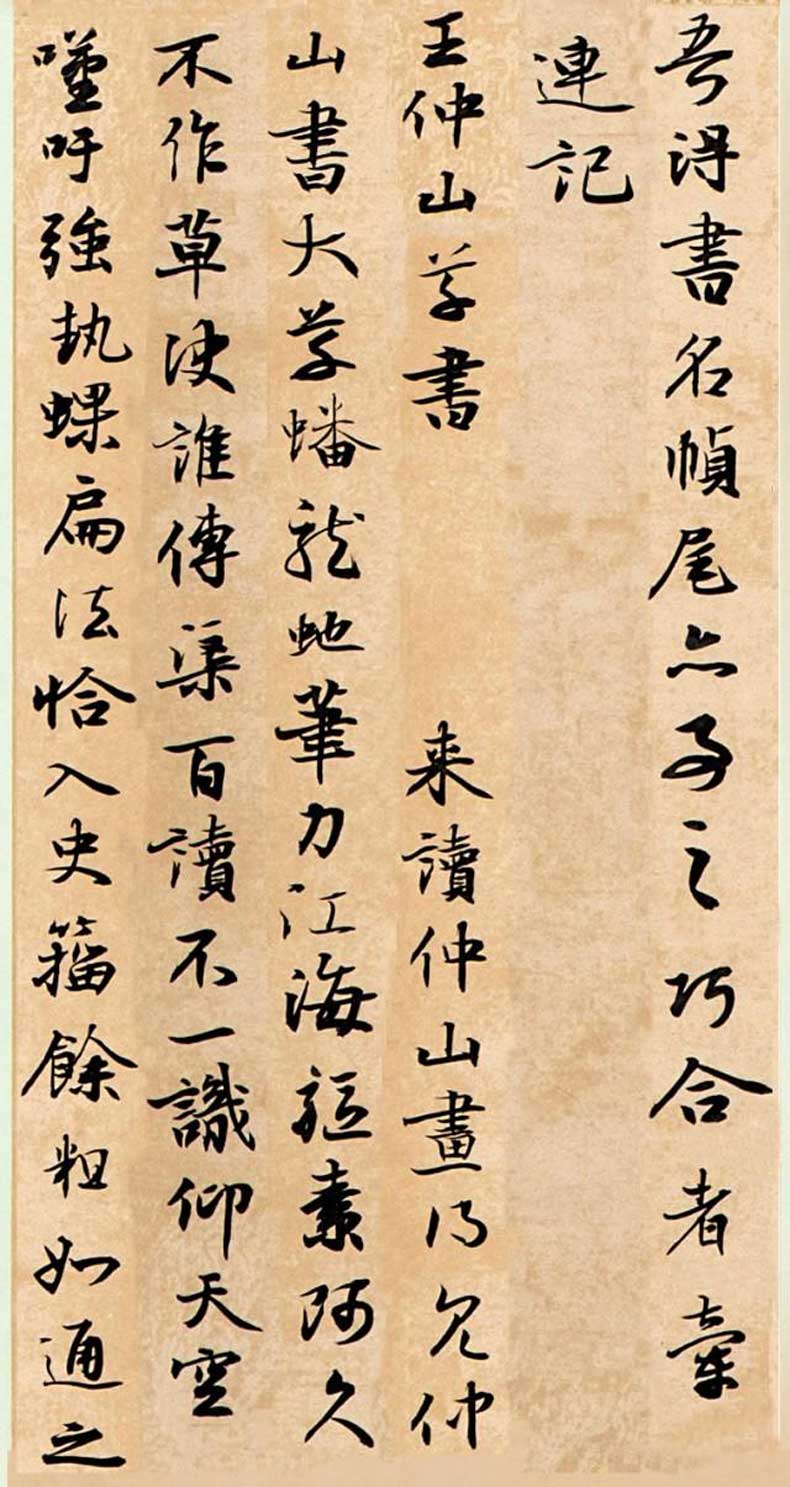 吾得書名幀尾亦事之巧合者牽
連記
王仲山草書　来讀仲山畫得見仲
山書大草蟠龍蛇筆力江海驅素阿久
不作草使誰傳渠百讀不一識仰天空
嘆吁強執螺扁法恰入史籀餘粗如通之